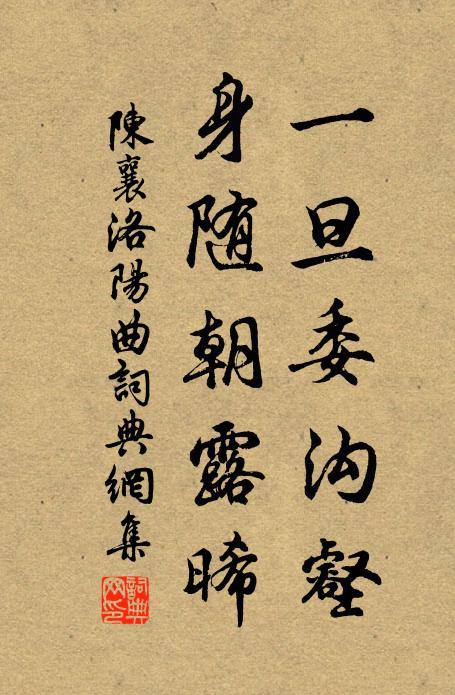 一旦委沟壑
身随朝露晞
陳襄洛陽曲詞典網集
詞典网印